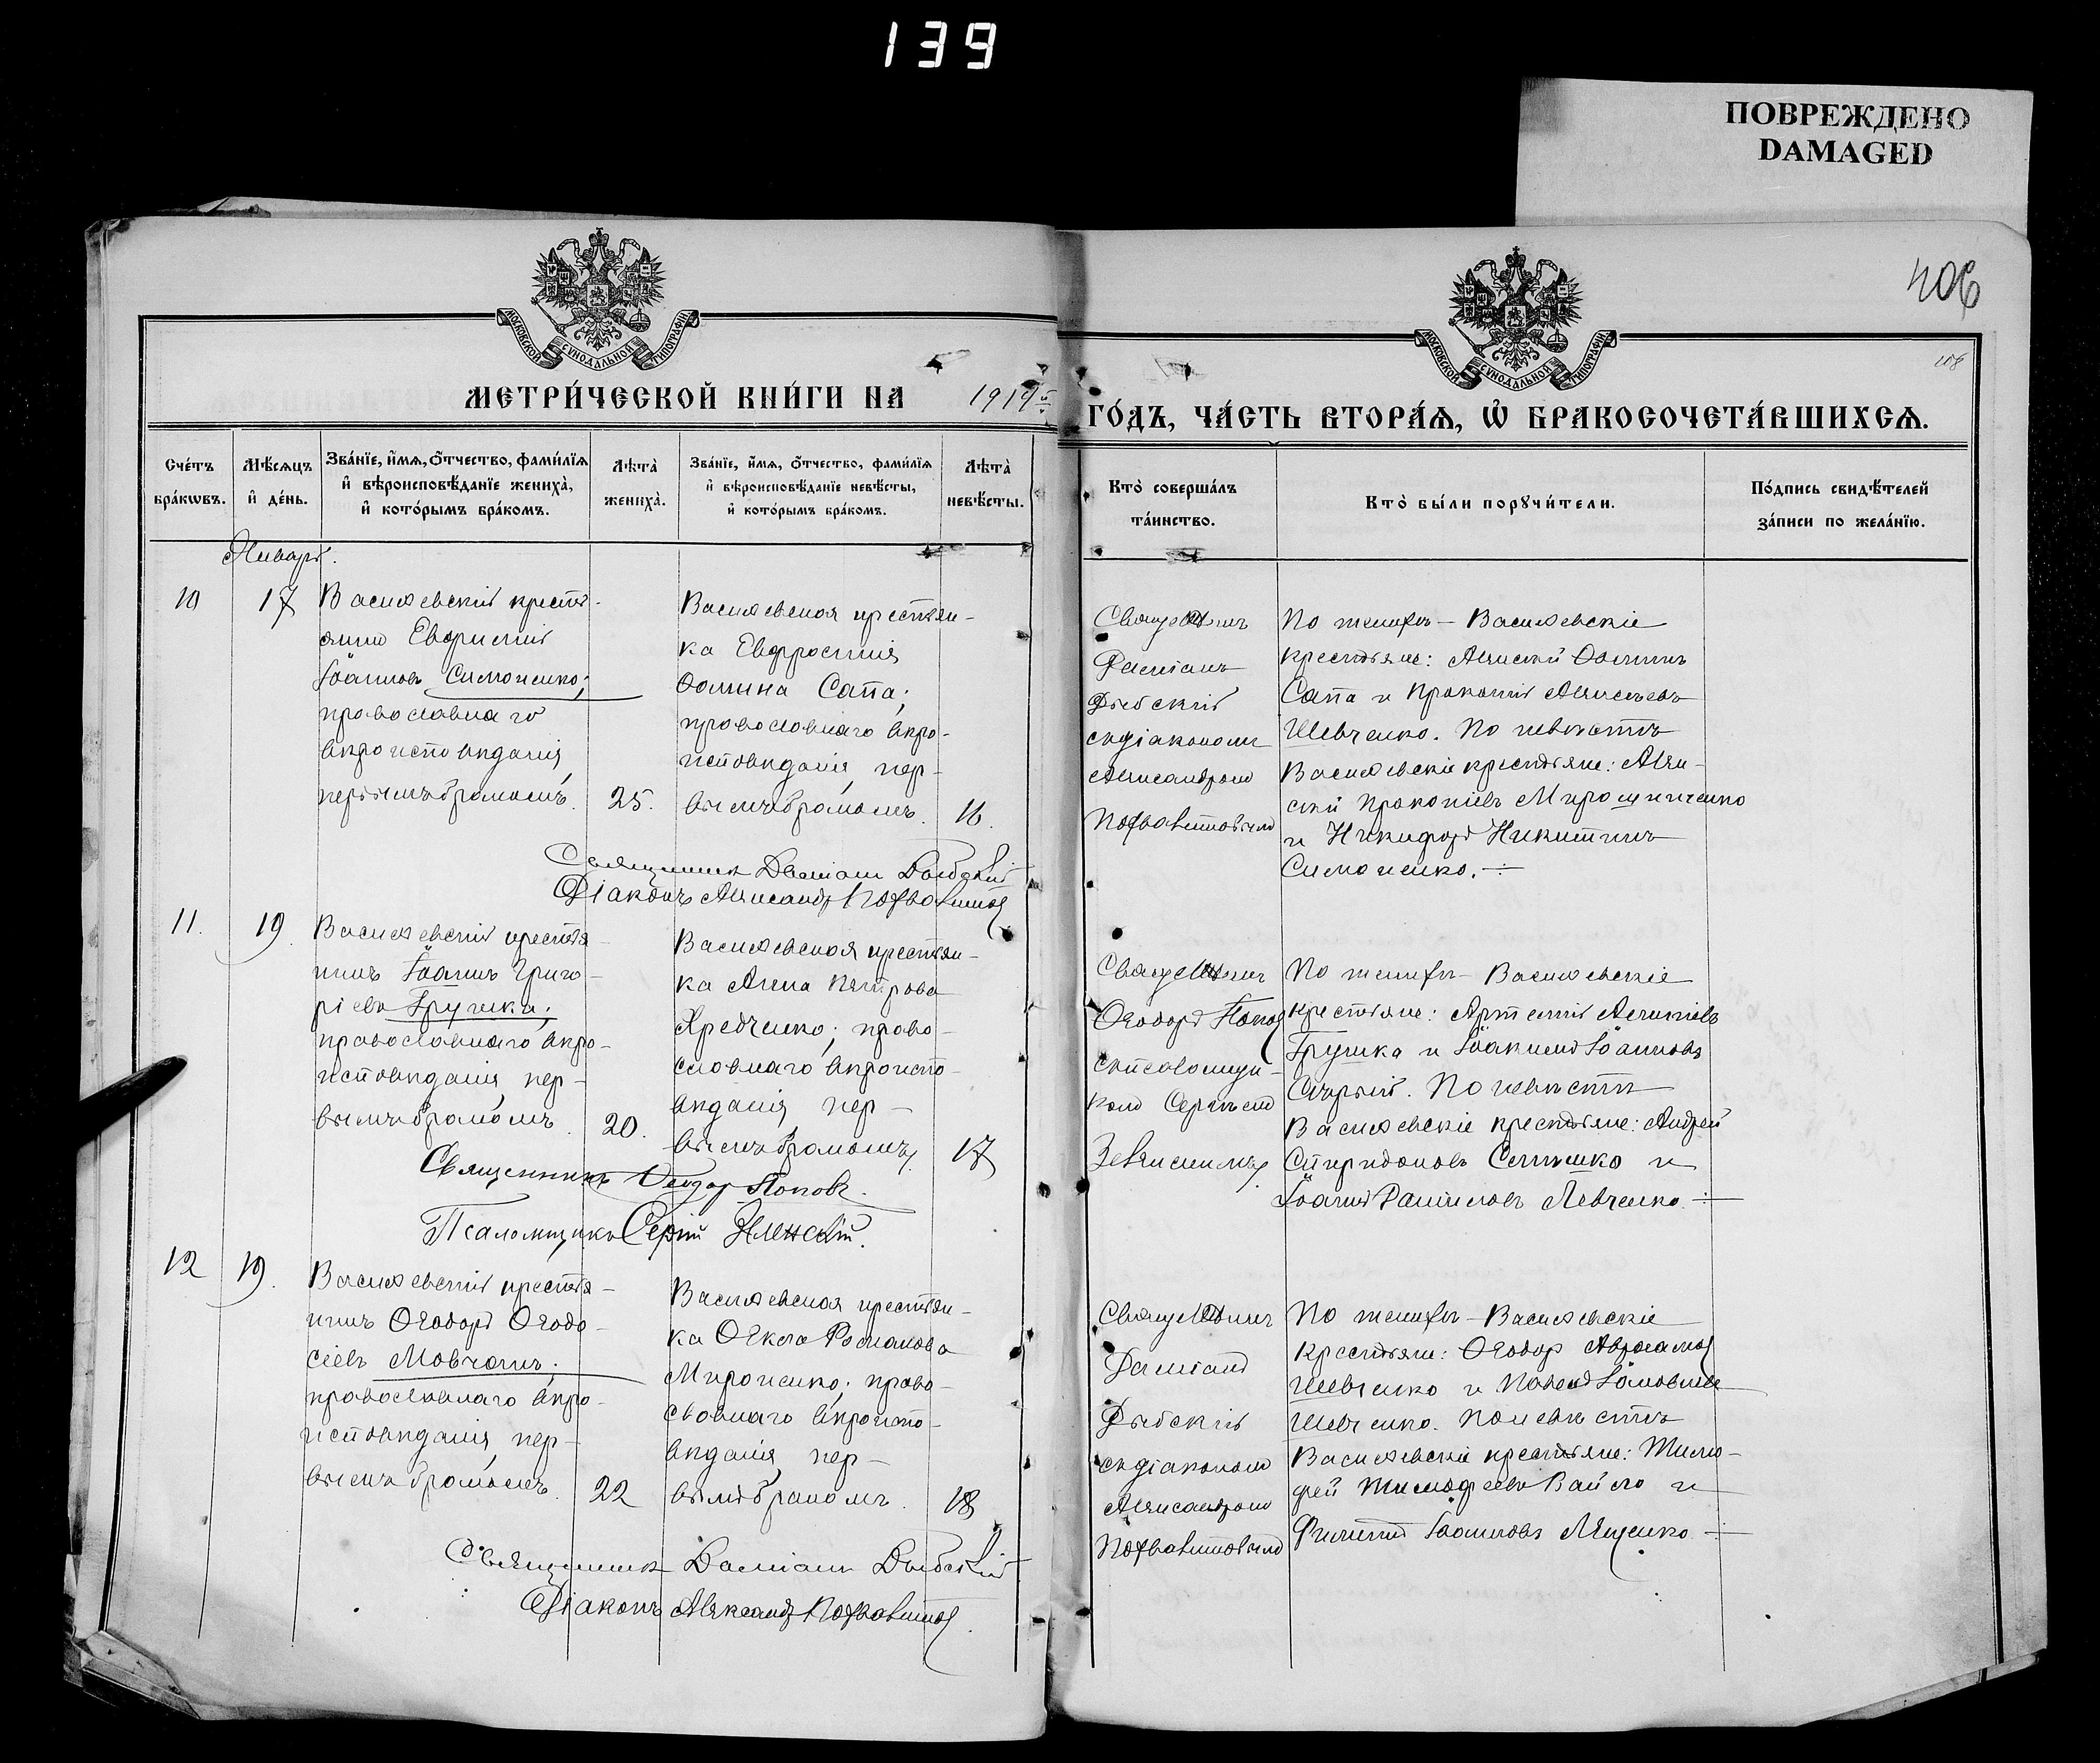 139
ПОВРЕЖДЕНО
DAMAGED
406
МОСКОВСКОЙ СѴНОДАЛЬНОЙ ТИПОГРАФІИ
МОСКОВСКОЙ СѴНОДАЛЬНОЙ ТИПОГРАФІИ
МЕТРИ́ЧЕСКОЙ КНИ́ГИ НА
ГО́ДЪ, ЧА́СТЬ ВТОРА́Ѧ, Ѡ҆ БРАКОСОЧЕТА́ВШИХСѦ.
Сче́тъ бра́кѡвъ.
Мѣ́сѧцъ и҆ де́нь.
Зва́нїе, и҆́мѧ, ѻ҆́тчество, фами́лїѧ
и҆ вѣроисповѣ́данїе жениха̀,
и҆ кото́рымъ бра́комъ.
Лѣ́та̀ жениха̀.
Зва́нїе, и҆́мѧ, ѻ҆́тчество, фами́лїѧ
и҆ вѣроисповѣ́данїе невѣ́сты,
и҆ кото́рымъ бра́комъ.
Лѣ́та̀ невѣ́сты.
Кто̀ соверша́лъ
та́инство.
Кто̀ бы́ли порꙋчи́тели.
По́дпись свидѣ́телей
за́писи по жела́нїю.
Январь.
10
17
Василевскій кресть-
янинъ Евфимій
Іоанновъ Симоненко;
православнаго
вѣроисповѣданія,
первымъ бракомъ.
25.
Василевская крестьян-
ка Евфросинія
Ѳомина Сапа;
православнаго вѣро-
исповѣданія, пер-
вымъ бракомъ.
16.
Священникъ
Даміанъ
съ діакономъ
Александромъ
По женихѣ - Василевскіе
крестьяне: Алексій Ѳоминъ
Сапа и Прокопій Алексѣевъ
Шевченко. По невѣстѣ
Василевскіе крестьяне: Алек-
сій Прокопіевъ Мирошниченко
и Никифоръ Никитинъ
Симоненко.
Священникъ Даміанъ
Діаконъ Александръ
11.
19.
Василевскій крестья-
нинъ Іоаннъ Григо-
ріевъ Грушка;
православнаго вѣро-
исповѣданія, пер-
вымъ бракомъ.
20.
Василевская крестьян-
ка Анна Петрова
Хредченко; право-
славнаго вѣроиспо-
вѣданія, пер-
вымъ бракомъ.
17
Священникъ
Ѳеодоръ Поповъ
съ псаломщи-
комъ Сергѣемъ
По женихѣ - Василевскіе
крестьяне:
Грушка и Іоакимъ Іоанновъ
По невѣстѣ
Василевскіе крестьяне: Андрей
Спиридоновъ и
Іоаннъ Даниловъ Левченко.
Священникъ Ѳеодоръ Поповъ.
Псаломщикъ Сергій
12
19.
Василевскій крестья-
нинъ Ѳеодоръ Ѳеодо-
сіевъ Мовчанъ;
православнаго вѣро-
исповѣданія, пер-
вымъ бракомъ.
22
Василевская крестьян-
ка Ѳекла Романова
Мироненко; право-
славнаго вѣроиспо-
вѣданія, пер-
вымъ бракомъ.
18
Священникъ
Даміанъ
съ діакономъ
Александромъ
По женихѣ - Василевскіе
крестьяне: Ѳеодоръ
Шевченко и Павелъ
Шевченко. По невѣстѣ
Василевскіе крестьяне: Тимо-
фей Тимофеевъ Вайло и
Филиппъ Іоанновъ Лященко.
Священникъ Даміанъ
Діаконъ Александръ